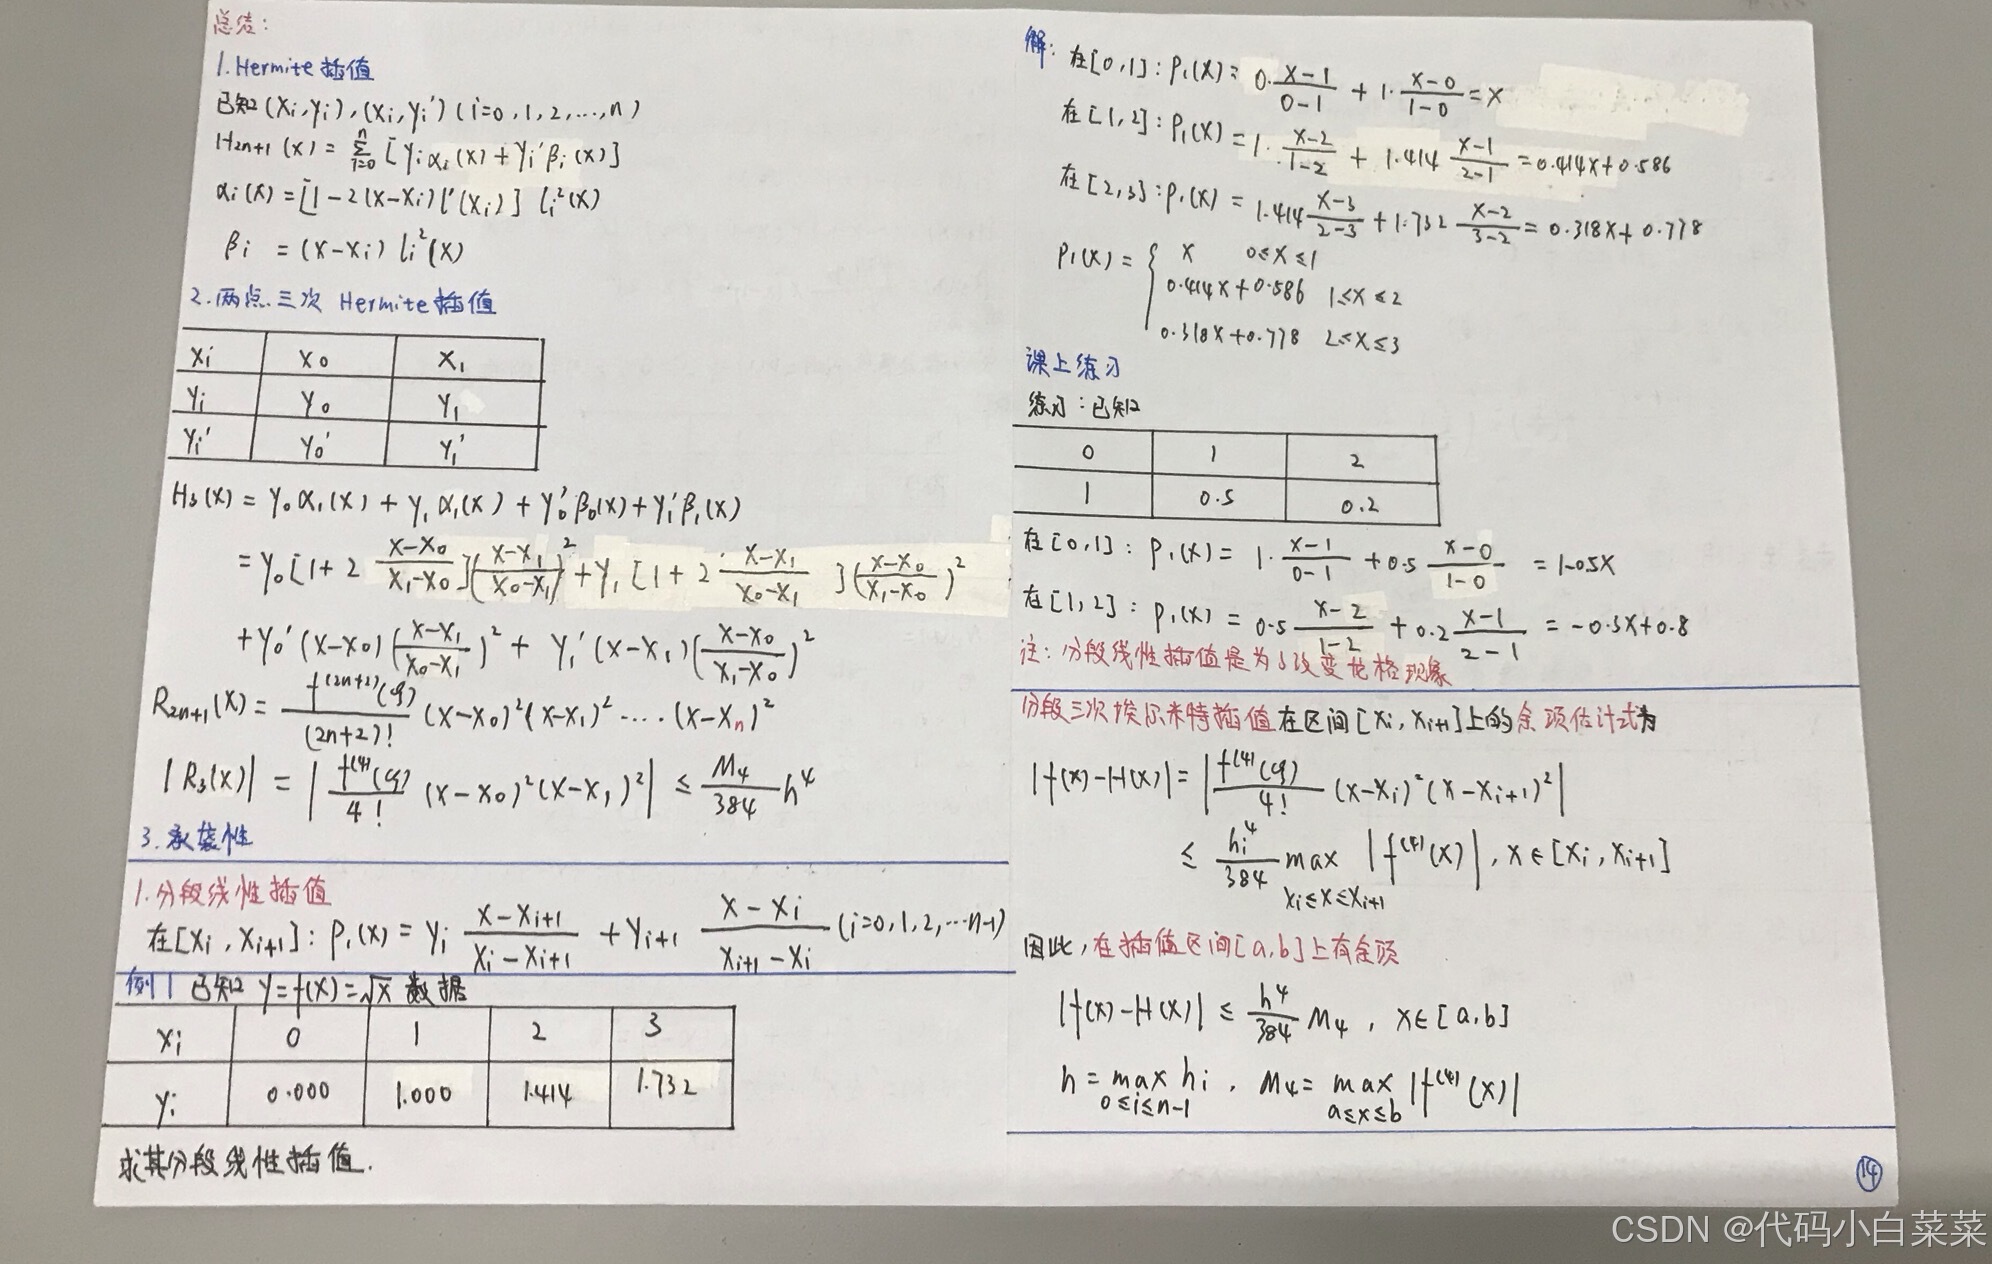 总结：
1.Hermite插值
已知(xi,yi),(xi,yi')(i=0,1,2,...,n)
H2n+1(x)=∑_{i=0}^{n}[yiαi(x)+yi'βi(x)]
αi(x)=[1-2(x-xi)l'(xi)]li²(x)
βi=(x-xi)li²(x)
2.两点三次Hermite插值
xi x0 x1
yi y0 y1
yi' y0' y1'
H3(x)=y0α1(x)+y1α1(x)+y0'β0(x)+y1'β1(x)
=y0[1+2 (x-x0)/(x1-x0)]((x-x1)/(x0-x1))²+y1[1+2 (x-x1)/(x0-x1)]((x-x0)/(x1-x0))²
+y0'(x-x0)((x-x1)/(x0-x1))²+y1'(x-x1)((x-x0)/(x1-x0))²
R2n+1(x)=f^(2n+2)(ξ)/(2n+2)! (x-x0)²(x-x1)²....(x-xn)²
|R3(x)|=|f^(4)(ξ)/4! (x-x0)²(x-x1)²|≤M4/384 h⁴
3.承袭性
1.分段线性插值
在[xi,xi+1]:P1(x)=yi (x-xi+1)/(xi-xi+1)+yi+1 (x-xi)/(xi+1-xi)(i=0,1,2,...n-1)
例1 已知y=f(x)=√x数据
xi 0 1 2 3
yi 0.000 1.000 1.414 1.732
求其分段线性插值.
解:在[0,1]:P1(x)=0·(x-1)/(0-1)+1·(x-0)/(1-0)=x
在[1,2]:P1(x)=1·(x-2)/(1-2)+1.414 (x-1)/(2-1)=0.414x+0.586
在[2,3]:P1(x)=1.414 (x-3)/(2-3)+1.732 (x-2)/(3-2)=0.318x+0.778
P1(x)={ x 0≤x≤1
0.414x+0.586 1≤x≤2
0.318x+0.778 2≤x≤3
课上练习
练习:已知
0 1 2
1 0.5 0.2
在[0,1]:P1(x)=1·(x-1)/(0-1)+0.5 (x-0)/(1-0)=1-0.5x
在[1,2]:P1(x)=0.5 (x-2)/(1-2)+0.2 (x-1)/(2-1)=-0.3x+0.8
注:分段线性插值是为了改变龙格现象
分段三次埃尔米特插值在区间[xi,xi+1]上的余项估计式为
|f(x)-H(x)|=|f^(4)(ξ)/4! (x-xi)²(x-xi+1)²|
≤hi⁴/384 max_{xi≤x≤xi+1}|f^(4)(x)|,x∈[xi,xi+1]
因此,在插值区间[a,b]上有余项
|f(x)-H(x)|≤h⁴/384 M4,x∈[a,b]
h=max_{0≤i≤n-1}hi,M4=max_{a≤x≤b}|f^(4)(x)|
14
CSDN @代码小白菜菜